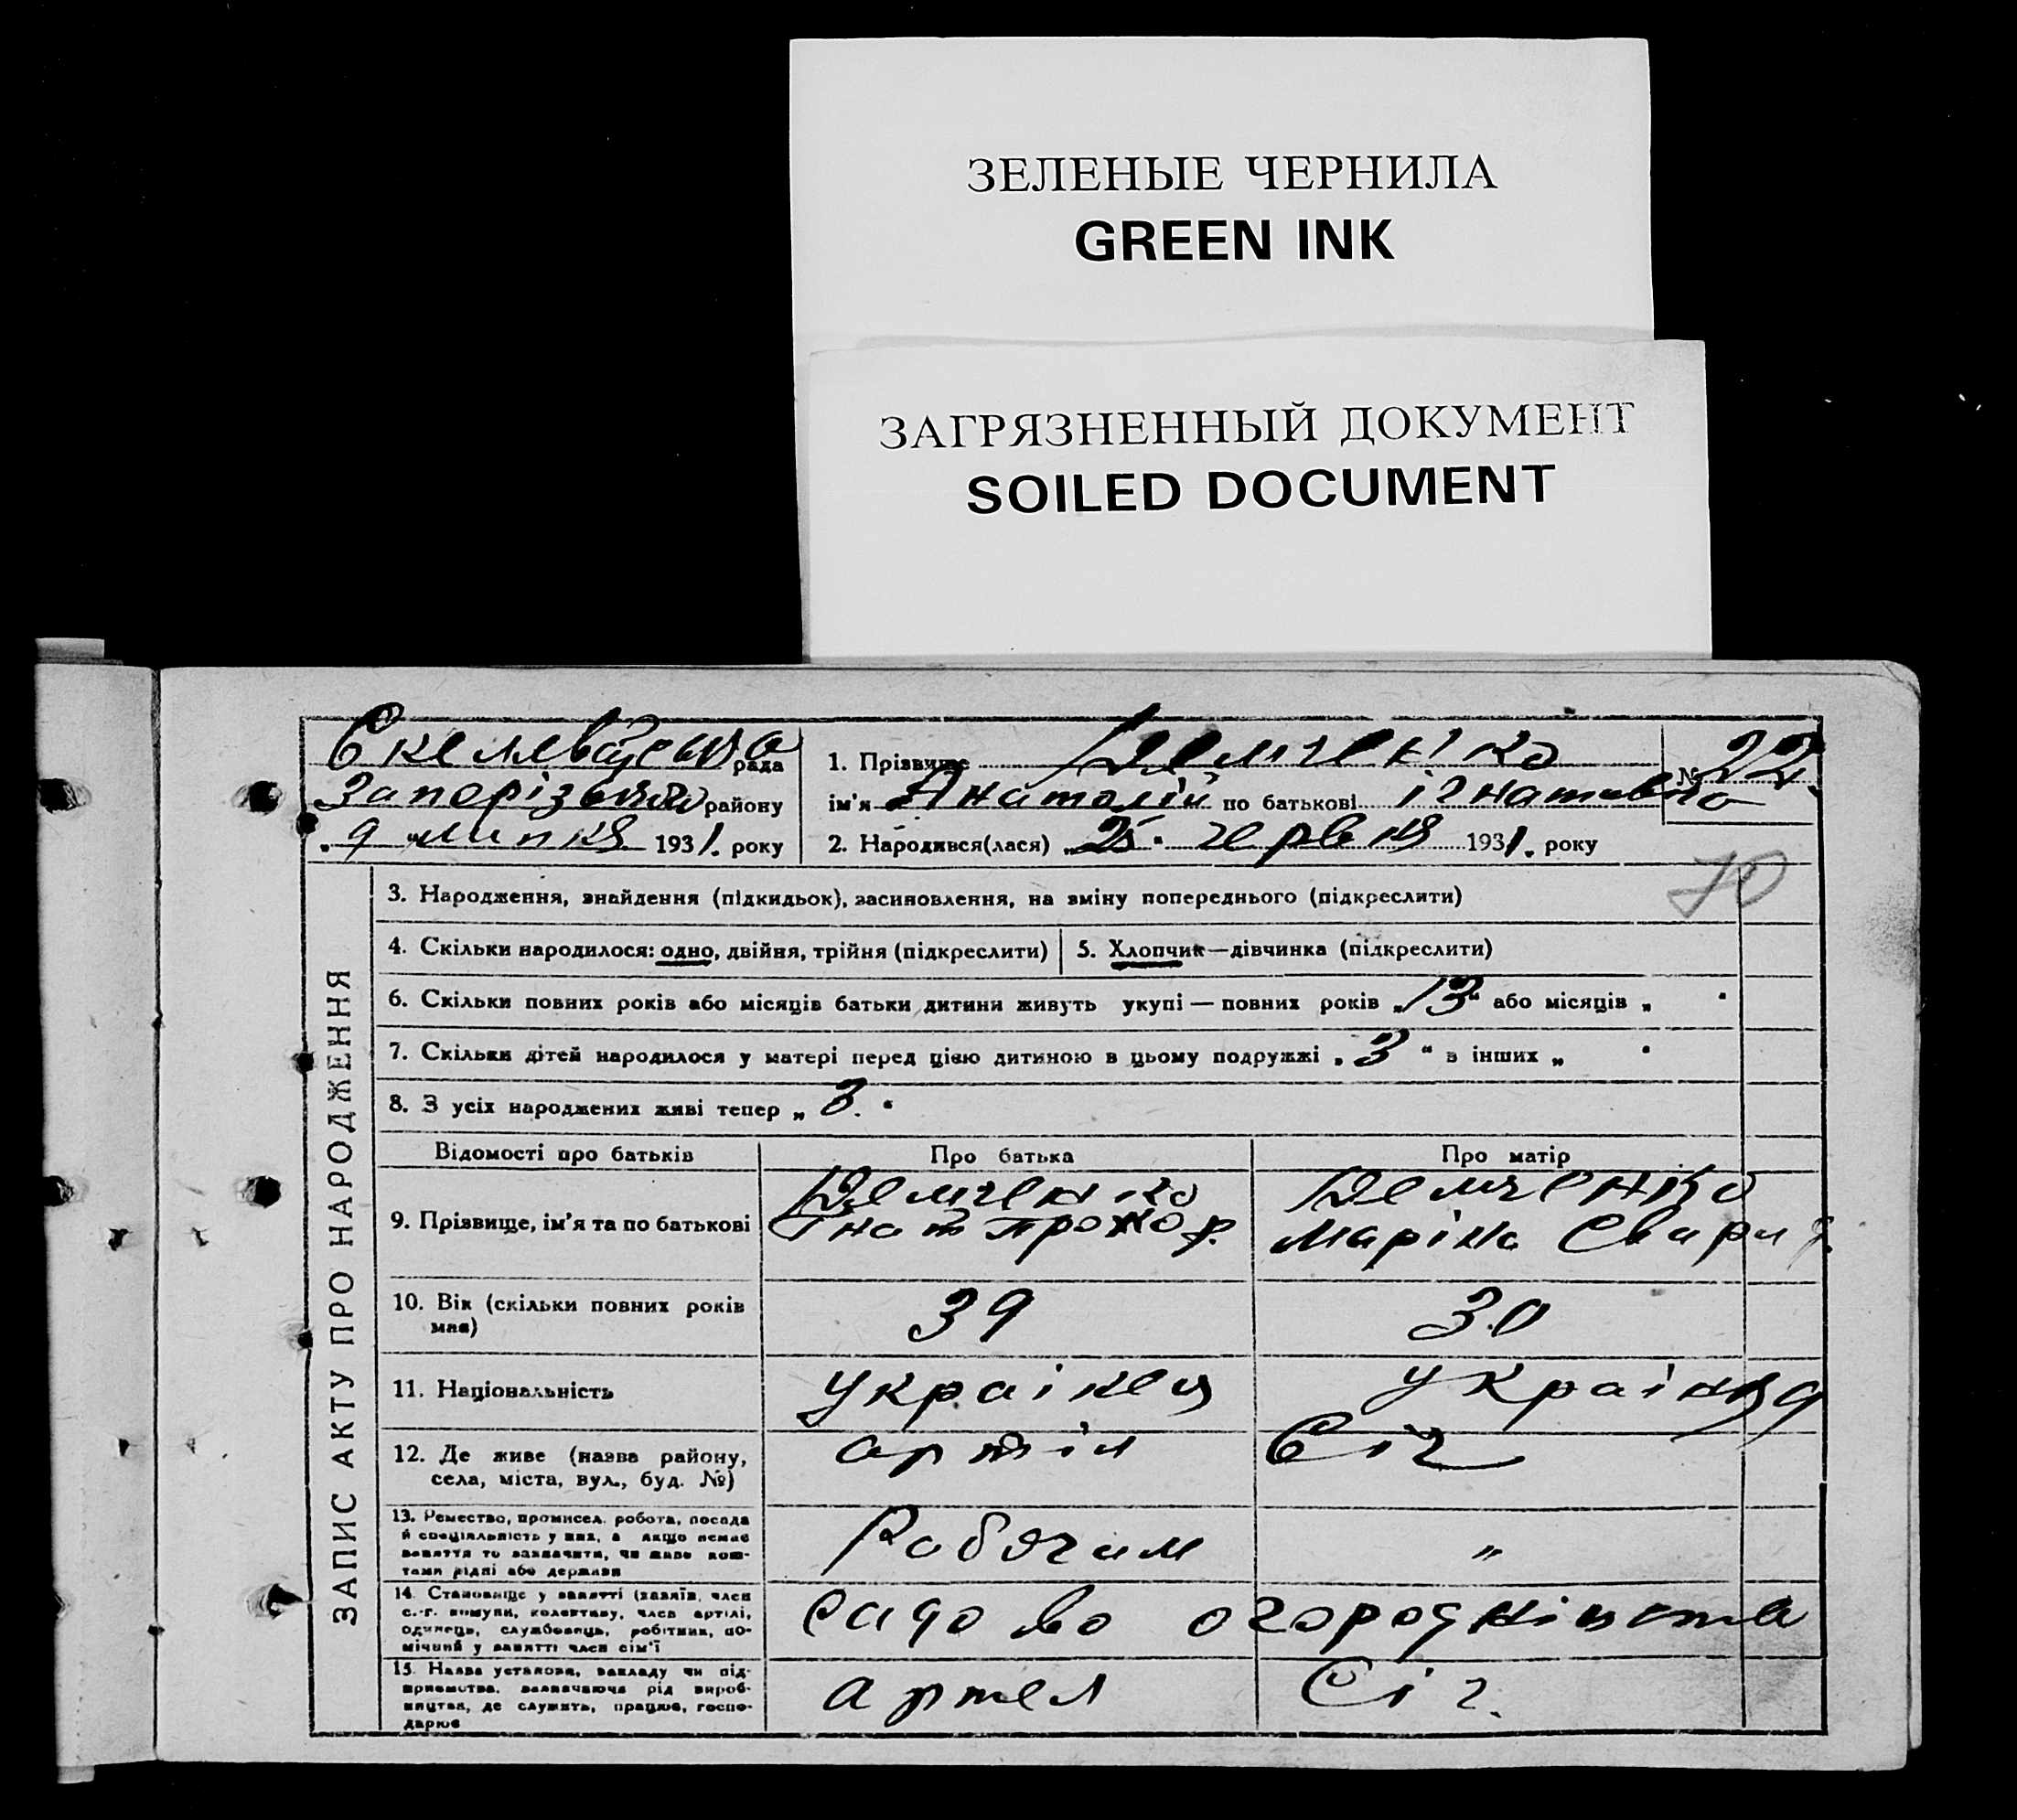 ЗЕЛЕНЫЕ ЧЕРНИЛА
GREEN INK
ЗАГРЯЗНЕННЫЙ ДОКУМЕНТ
SOILED DOCUMENT
рада
району
„9" липня 1931. року
1. Прізвище Демченко
ім'я Анатолій по батькові ігнатович
№ 22.
2. Народився(лася) „25" червня 1931. року
70
ЗАПИС АКТУ ПРО НАРОДЖЕННЯ
3. Народження, знайдення (підкидьок), засиновлення, на зміну попереднього (підкреслити)
4. Скільки народилося: одно, двійня, трійня (підкреслити)
5. Хлопчик—дівчинка (підкреслити)
6. Скільки повних років або місяців батьки дитини живуть укупі — повних років „13" або місяців „ "
7. Скільки дітей народилося у матері перед цією дитиною в цьому подружжі „3" в інших „ "
8. З усіх народжених живі тепер „3."
Відомості про батьків
Про батька
Про матір
9. Прізвище, ім'я та по батькові
Демченко
Гнат Прокор.
Демченко
Маріна
10. Вік (скільки повних років
має)
39
30
11. Національність
українец
українка
12. Де живе (назва району,
села, міста, вул., буд. №)
артіл
Січ
13. Ремество, промисел, робота, посада
й спеціяльність у них, а якщо немає
заняття то зазначити, чи живе кош-
тами рідні або держави
Робочим
„
14. Становище у занятті (хазяїн, член
с.-г. комуни, колективу, член артілі,
одинець, службовець, робітник, по-
мічний у занятті член сім'ї
садово огородніцтва
15. Назва установи, закладу чи під-
приємства, зазначаючи рід вироб-
ництва, де служить, працює, госпо-
дарює
артел
Січ.